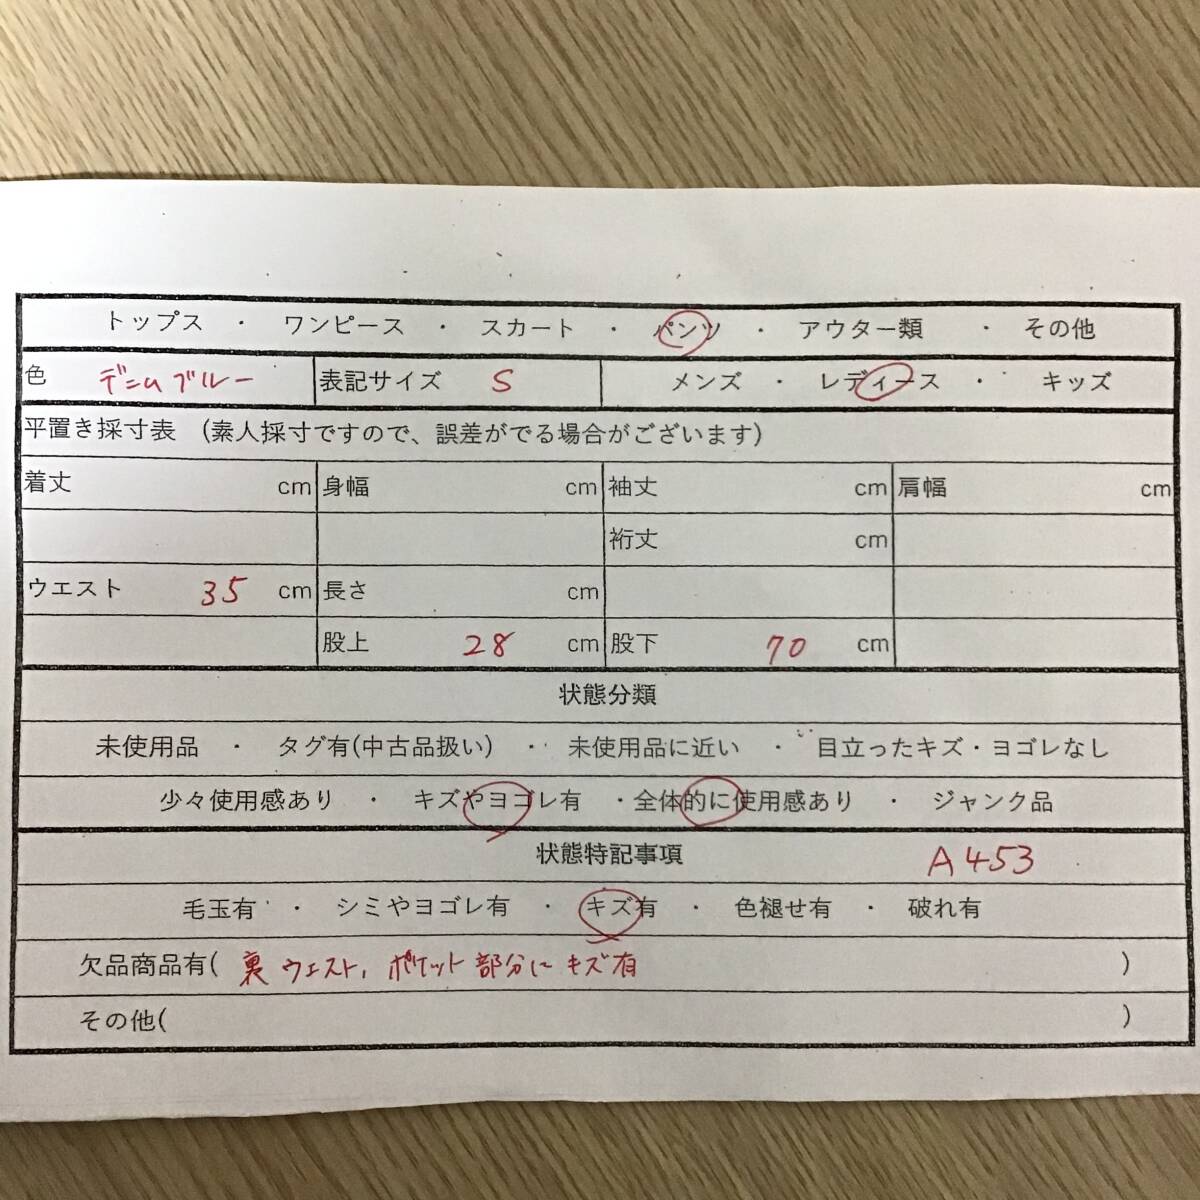 トップス ・ ワンピース ・ スカート ・ パンツ ・ アウター類 ・ その他
色 デニムブルー 表記サイズ S メンズ ・ レディース ・ キッズ
平置き採寸表 (素人採寸ですので、誤差がでる場合がございます)
着丈 cm 身幅 cm 袖丈 cm 肩幅 cm
裄丈 cm
ウエスト 35 cm 長さ cm
股上 28 cm 股下 70 cm
状態分類
未使用品 ・ タグ有(中古品扱い) ・ 未使用品に近い ・ 目立ったキズ・ヨゴレなし
少々使用感あり ・ キズやヨゴレ有 ・全体的に使用感あり ・ ジャンク品
状態特記事項 A453
毛玉有 ・ シミやヨゴレ有 ・ キズ有 ・ 色褪せ有 ・ 破れ有
欠品商品有( 裏ウエスト, ポケット部分にキズ有 )
その他( )